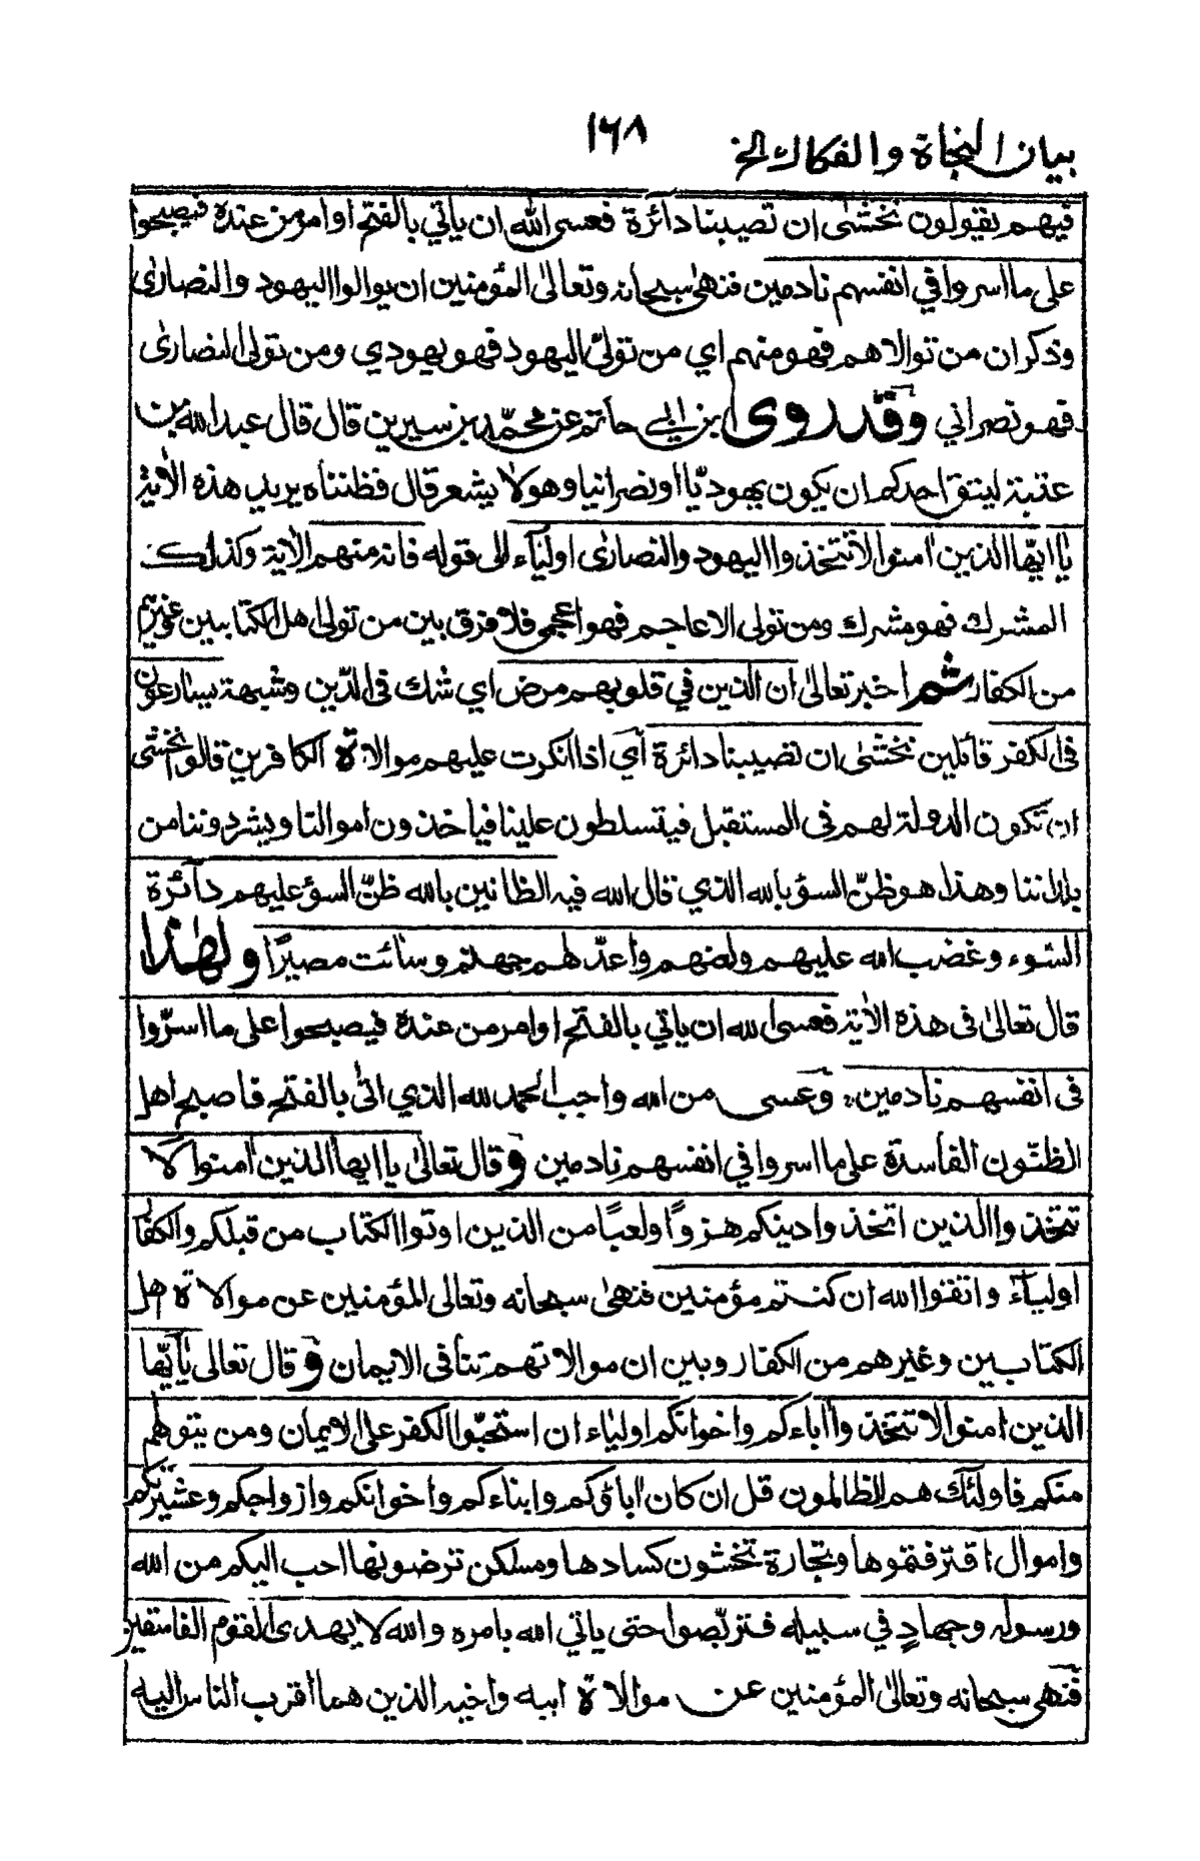 بيان النجاة والفكاك الخ
١٦٨
فيهم يقولون نخشى ان تصيبنا دائرة فعسى الله ان ياتي بالفتح او امر من عنده فيصبحوا
على ما اسروا في انفسهم نادمين فنهى سبحانه وتعالى المؤمنين ان يوالوا اليهود والنصارى
وذكر ان من توالاهم فهو منهم اي من تولىّ اليهود فهو يهودي ومن تولى النصارى
فهو نصراني وقد روى ابن ابي حاتم عن محمّد بن سيرين قال قال عبد الله بن
عتبة ليتق احدكم ان يكون يهوديّا او نصرانيا وهو لا يشعر قال فظنناه يريد هذه الآية
يا ايّها الذين امنوا لا تتخذوا اليهود والنصارى اولياء الى قوله فانه منهم الآية وكذلك
المشرك فهو مشرك ومن تولى الاعاجم فهو اعجمي فلا فرق بين من تولى اهل الكتابين وغيرهم
من الكفار ثم اخبر تعالى ان الذين في قلوبهم مرض اي شك في الدّين وشبهة يسارعون
في الكفر قائلين نخشى ان تصيبنا دائرة اي اذا انكرت عليهم موالاة الكافرين قالوا نخشى
ان تكون الدولة لهم في المستقبل فيتسلطون علينا فياخذون اموالنا ويشردوننا من
بلداننا وهذا هو ظنّ السؤ بالله الذي قال الله فيه الظانين بالله ظنّ السؤ عليهم دآئرة
السّوء وغضب الله عليهم ولعنهم واعدّ لهم جهنم وسائت مصيرًا ولهذا
قال تعالى في هذه الآية فعسى الله ان ياتي بالفتح او امر من عنده فيصبحوا على ما اسرّوا
في انفسهم نادمين، وعسى من الله واجب الحمد لله الذي اتى بالفتح فاصبح اهل
الظنّون الفاسدة على ما اسروا في انفسهم نادمين وقال تعالى يا ايها الذين امنوا لا
تتخذوا الذين اتخذوا دينكم هزوًا ولعبًا من الذين اوتوا الكتاب من قبلكم والكفار
اوليآء واتقوا الله ان كنتم مؤمنين فنهى سبحانه وتعالى المؤمنين عن موالاة اهل
الكتابين وغيرهم من الكفار وبين ان موالاتهم تنافى الايمان وقال تعالى يا ايّها
الذين امنوا لا تتخذوا اباءكم واخوانكم اولياء ان استحبّوا الكفر على الايمان ومن يتولهم
منكم فاولئك هم الظالمون قل ان كان اباؤكم وابناءكم واخوانكم وازواجكم وعشيرتكم
واموال اقترفتموها وتجارة تخشون كسادها ومسكن ترضونها احب اليكم من الله
ورسوله وجهادٍ في سبيله فتربّصوا حتى ياتي الله بامره والله لا يهدى القوم الفاسقين
فنهى سبحانه وتعالى المؤمنين عن موالاة ابيه واخيه الذين هما اقرب الناس اليه